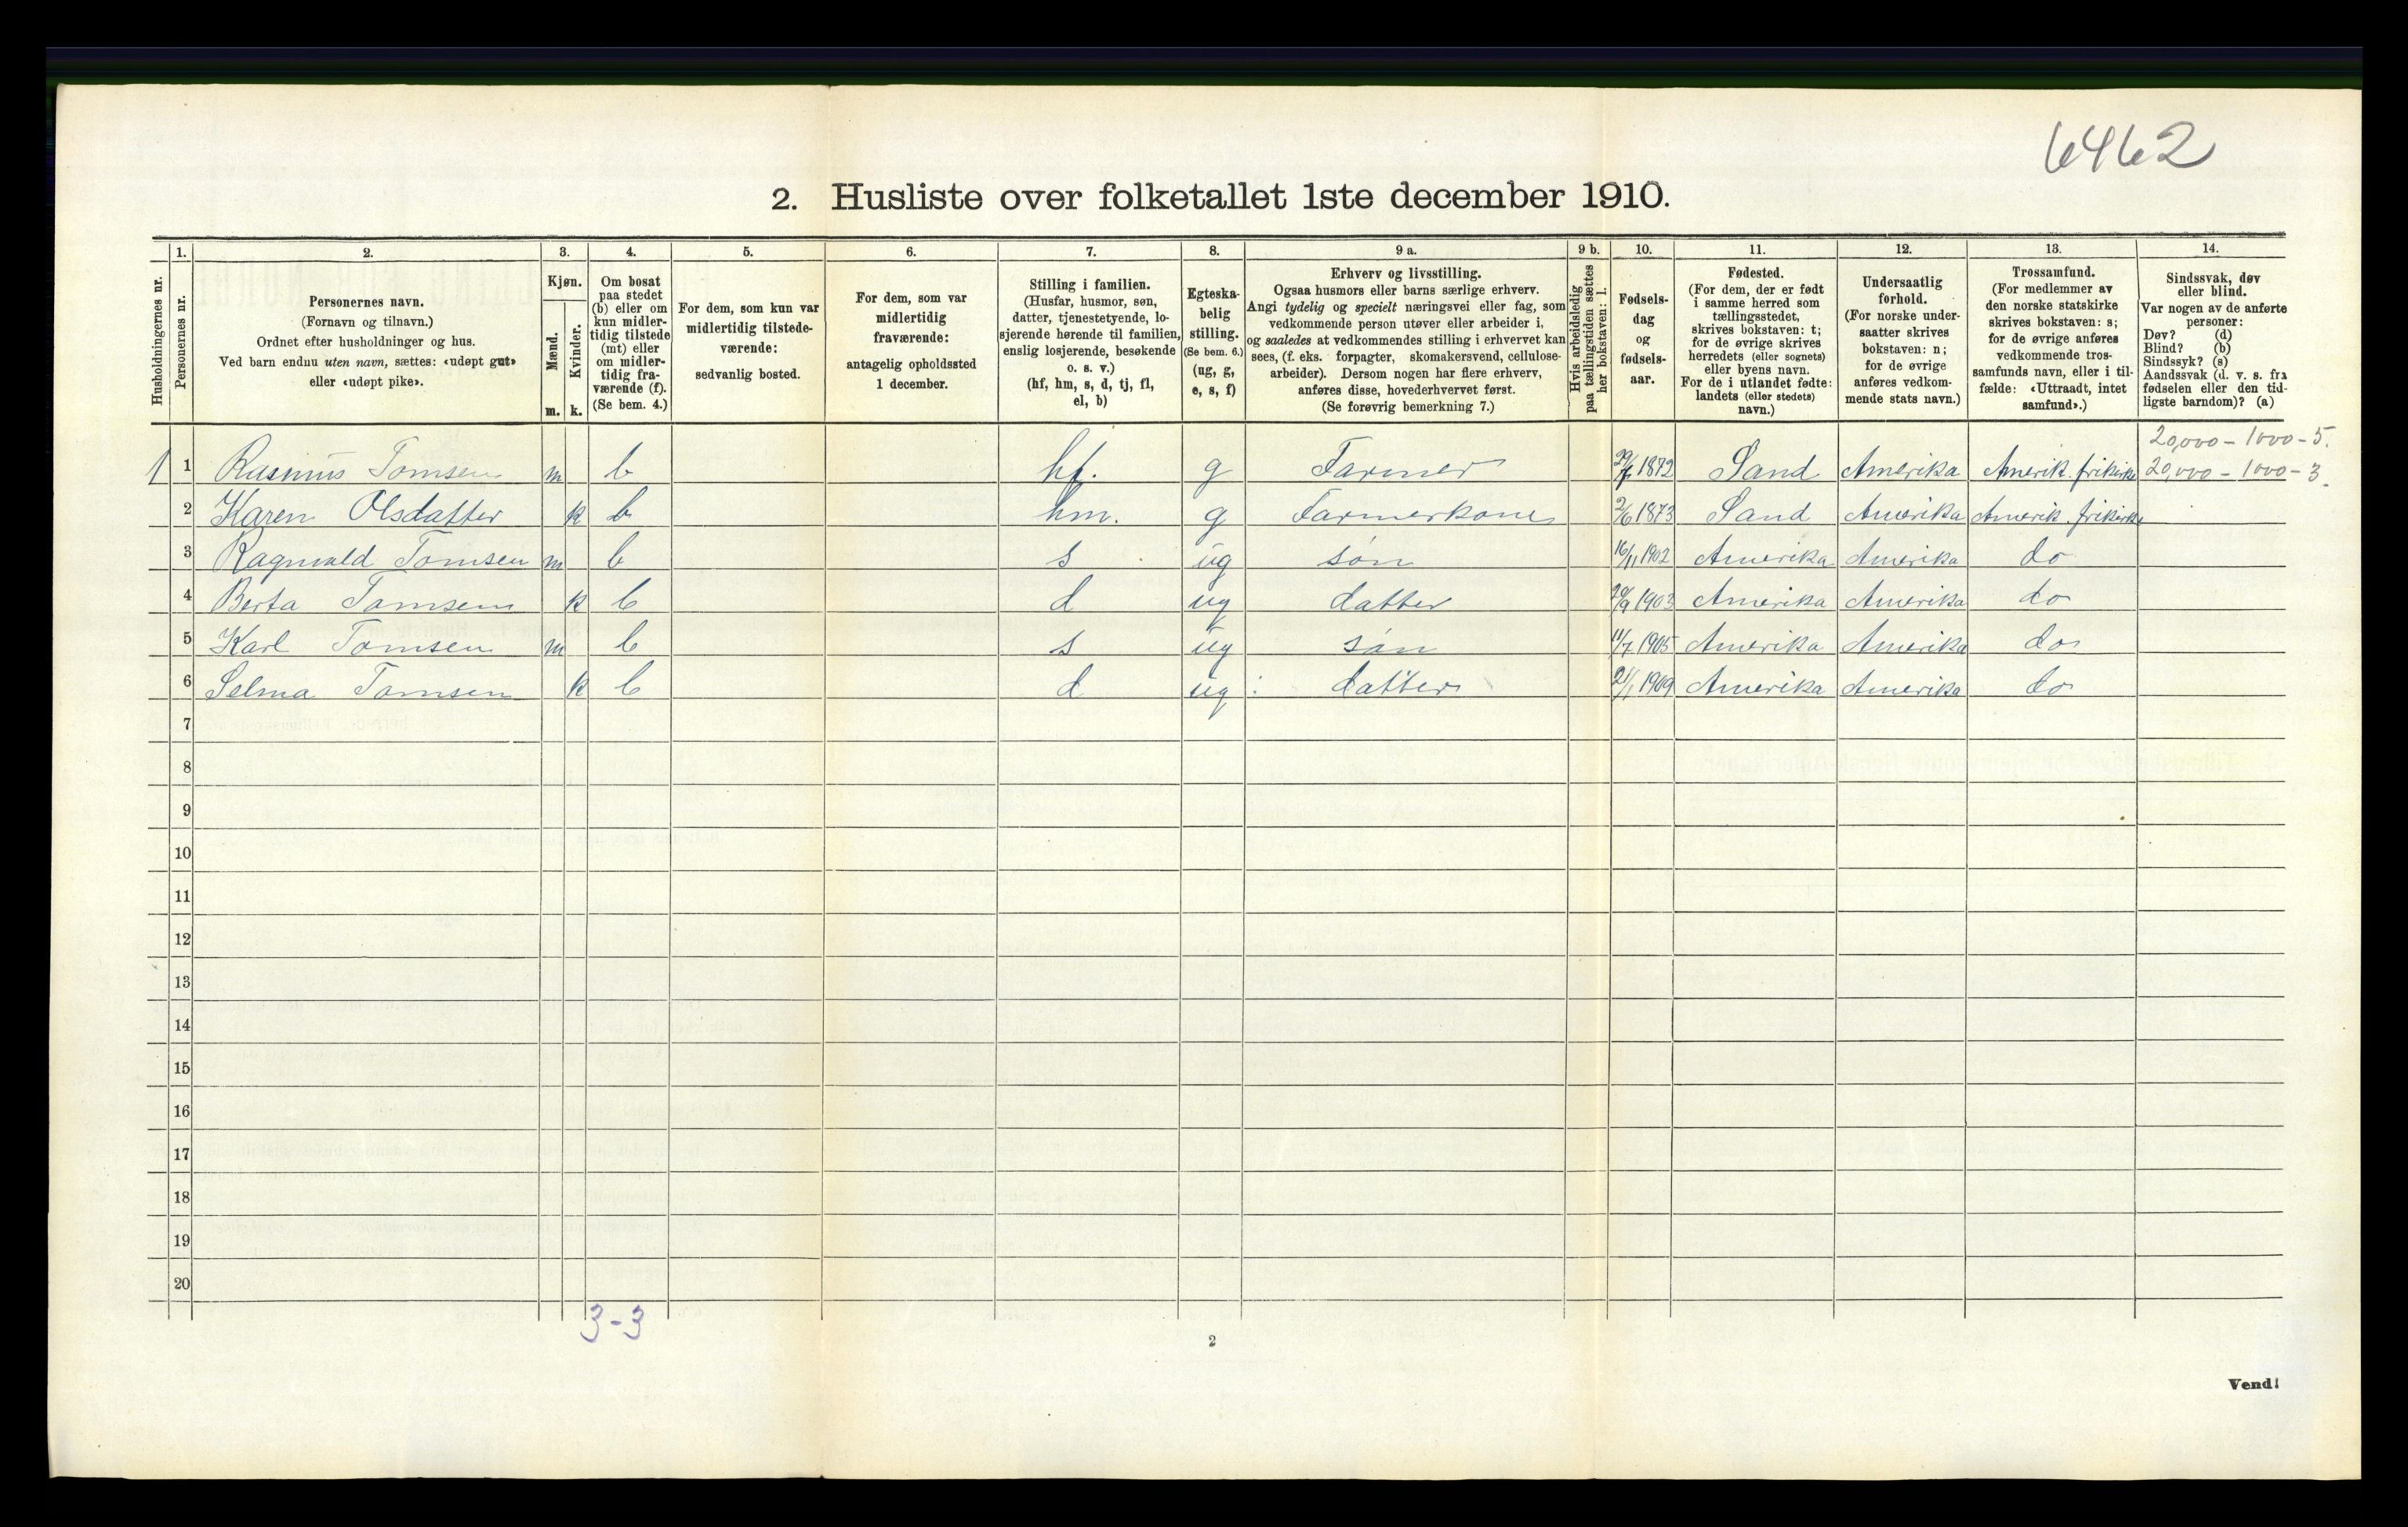 6462
2. Husliste over folketallet 1ste december 1910.
Husholdningernes nr.
1.
Personernes nr.
2.
Personernes navn.
(Fornavn og tilnavn.)
Ordnet efter husholdninger og hus.
Ved barn endnu uten navn, sættes: «udøpt gut»
eller «udøpt pike».
3.
Kjøn.
Mænd.
Kvinder.
m. k.
4.
Om bosat
paa stedet
(b) eller om
kun midler-
tidig tilstede
(mt) eller
om midler-
tidig fra-
værende (f).
(Se bem. 4.)
5.
For dem, som kun var
midlertidig tilstede-
værende:
sedvanlig bosted.
6.
For dem, som var
midlertidig
fraværende:
antagelig opholdssted
1 december.
7.
Stilling i familien.
(Husfar, husmor, søn,
datter, tjenestetyende, lo-
sjerende hørende til familien,
enslig losjerende, besøkende
o. s. v.)
(hf, hm, s, d, tj, fl,
el, b)
8.
Egteska-
belig
stilling.
(Se bem. 6.)
(ug, g,
e, s, f)
9 a.
Erhverv og livsstilling.
Ogsaa husmors eller barns særlige erhverv.
Angi tydelig og specielt næringsvei eller fag, som
vedkommende person utøver eller arbeider i,
og saaledes at vedkommendes stilling i erhvervet kan
sees, (f. eks. forpagter, skomakersvend, cellulose-
arbeider). Dersom nogen har flere erhverv,
anføres disse, hovederhvervet først.
(Se forøvrig bemerkning 7.)
9 b.
Hvis arbeidsledig
paa tællingstiden sættes
her bokstaven: l.
10.
Fødsels-
dag
og
fødsels-
aar.
11.
Fødested.
(For dem, der er født
i samme herred som
tællingsstedet,
skrives bokstaven: t;
for de øvrige skrives
herredets (eller sognets)
eller byens navn.
For de i utlandet fødte:
landets (eller stedets)
navn.)
12.
Undersaatlig
forhold.
(For norske under-
saatter skrives
bokstaven: n;
for de øvrige
anføres vedkom-
mende stats navn.)
13.
Trossamfund.
(For medlemmer av
den norske statskirke
skrives bokstaven: s;
for de øvrige anføres
vedkommende tros-
samfunds navn, eller i til-
fælde: «Uttraadt, intet
samfund».)
14.
Sindssvak, døv
eller blind.
Var nogen av de anførte
personer:
Døv? (d)
Blind? (b)
Sindssyk? (s)
Aandssvak (d. v. s. fra
fødselen eller den tid-
ligste barndom)? (a)
20,000 – 1000 – 5.
1 1 Rasmus Tomsen m b hf. g Farmer 1872 Sand Amerika Amerik. frikirke 20,000 – 1000 – 3.
2 Karen Olsdatter k b hm. g Farmerkone 2/6 1873 Sand Amerika Amerik. frikirke
3 Ragnvald Tomsen m b s ug søn 16/11 1902 Amerika Amerika do
4 Berta Tomsen k b d ug datter 20/9 1903 Amerika Amerika do
5 Karl Tomsen m b s ug søn 11/7 1905 Amerika Amerika do
6 Selma Tomsen k b d ug datter 21/1 1909 Amerika Amerika do
7
8
9
10
11
12
13
14
15
16
17
18
19
20
3-3
2
Vend!